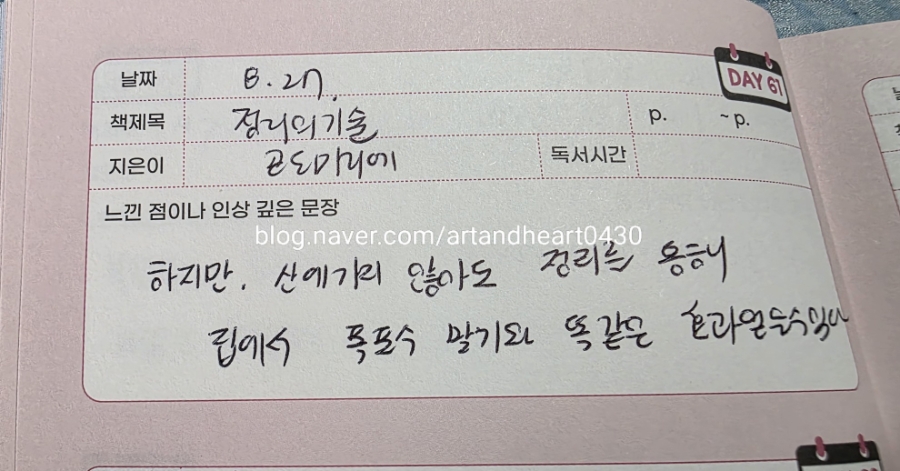 날짜 8. 27.
DAY 61
책제목 정리의기술 p. ~p.
지은이 곤도마리에 독서시간
느낀 점이나 인상 깊은 문장
blog.naver.com/artandheart0430
하지만, 산에가지 않아도 정리를
집에서 폭포수 맞기와 똑같은 효과얻을수있다